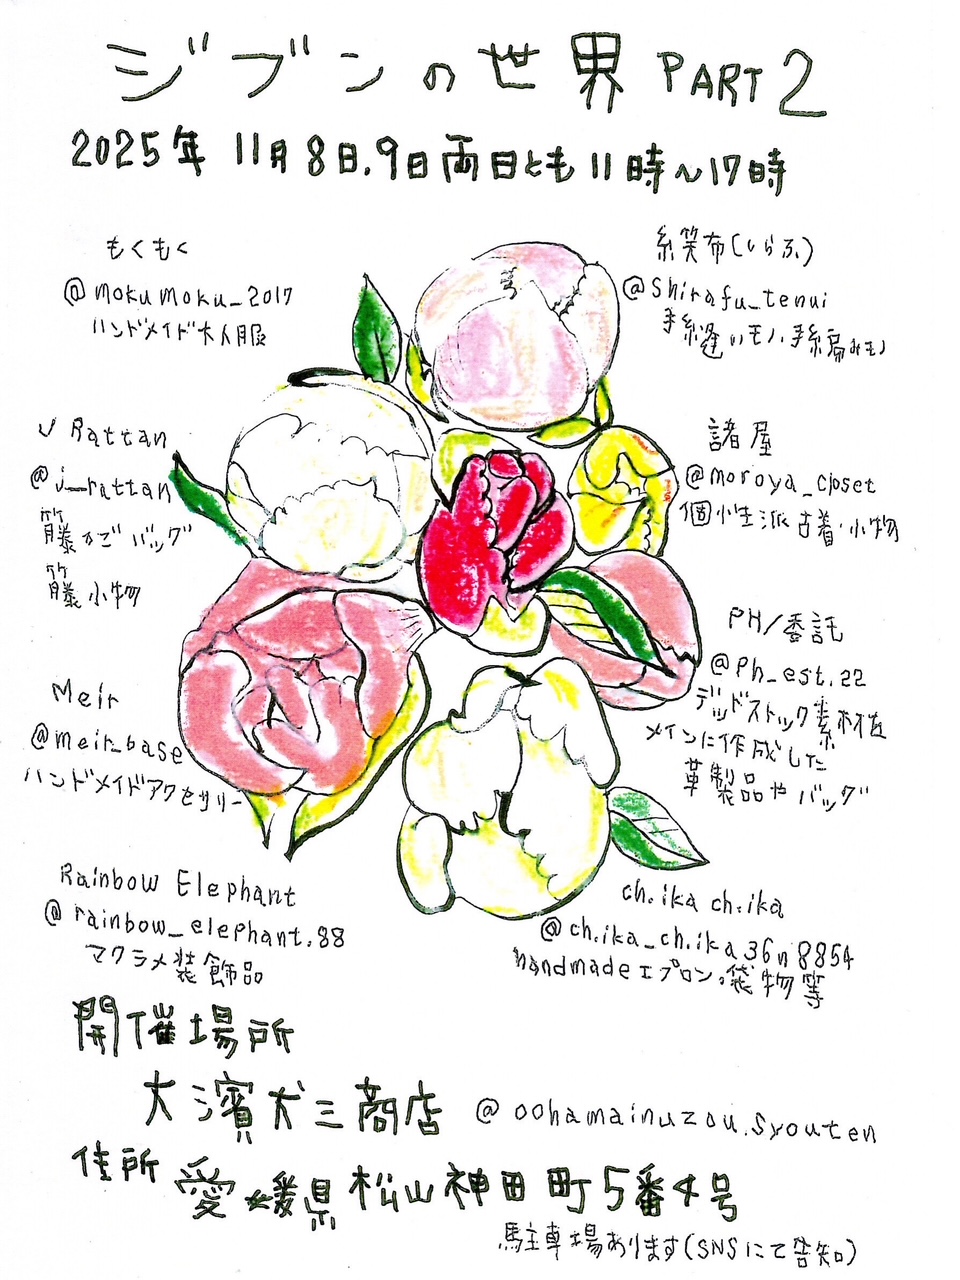 ジブンの世界 PART2
2025年 11月8日.9日両日とも11時〜17時
もくもく
@mokumoku_2017
ハンドメイド大人服
糸笑布(しらふ)
@shirafu_tenui
手縫いモノ、手編みモノ
J Rattan
@j_rattan
籐かごバッグ
籐小物
諸屋
@moroya_closet
個性派古着・小物
PH/委託
@ph_est.22
デッドストック素材を
メインに作成した
革製品やバッグ
Meir
@meir_base
ハンドメイドアクセサリー
Rainbow Elephant
@rainbow_elephant.88
マクラメ装飾品
ch.ika ch.ika
@ch.ika_ch.ika36n8854
handmadeエプロン。袋物等
開催場所
大濱犬三商店 @oohamainuzou.syouten
住所 愛媛県松山神田町5番4号
駐車場あります(SNSにて告知)